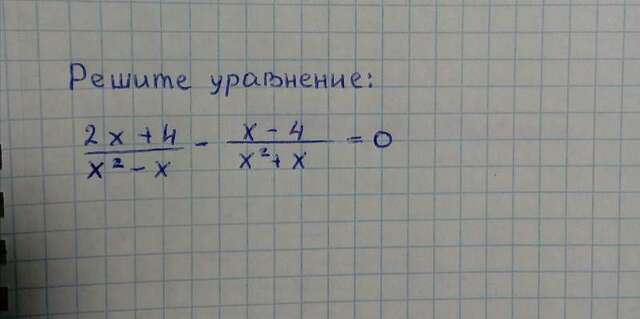 Решите уравнение:
2x+4/x²-x - x-4/x²+x = 0